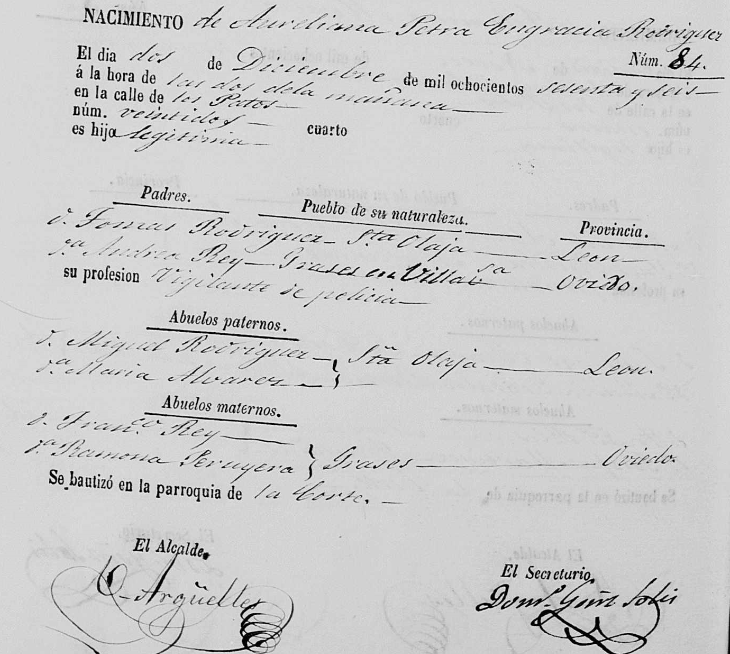 NACIMIENTO de Aureliana Petra Engracia Rodriguez
Núm. 84.
El dia dos de Diciembre de mil ochocientos sesenta y seis
á la hora de las dos de la mañana
en la calle de los Patos
núm. veintidos cuarto
es hija legitima
Padres. Pueblo de su naturaleza. Provincia.
d. Tomas Rodriguez Sta Olaja Leon
d.a Andrea Rey Grases en Villasa Oviedo.
su profesion Vigilante de policia
Abuelos paternos.
d. Miguel Rodriguez Sta Olaja Leon.
d.a Maria Alvarez
Abuelos maternos.
d. Fran.co Rey
d.a Ramona Peruyera Grases Oviedo.
Se bautizó en la parroquia de la Corte.
El Alcalde.
El Secretario.
O-Argüelles
Dom.o Solis